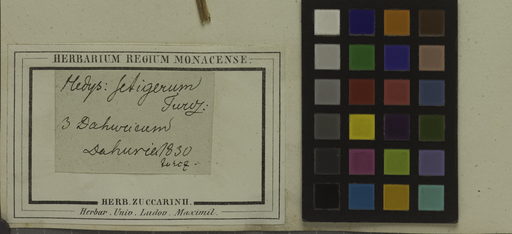 HERBARIUM REGIUM MONACENSE.
Hedys: setigerum
Turcz:
3 Dahuricum
Dahuria 1830
Turcz.
HERB. ZUCCARINII.
Herbar. Univ. Ludov. Maximil.